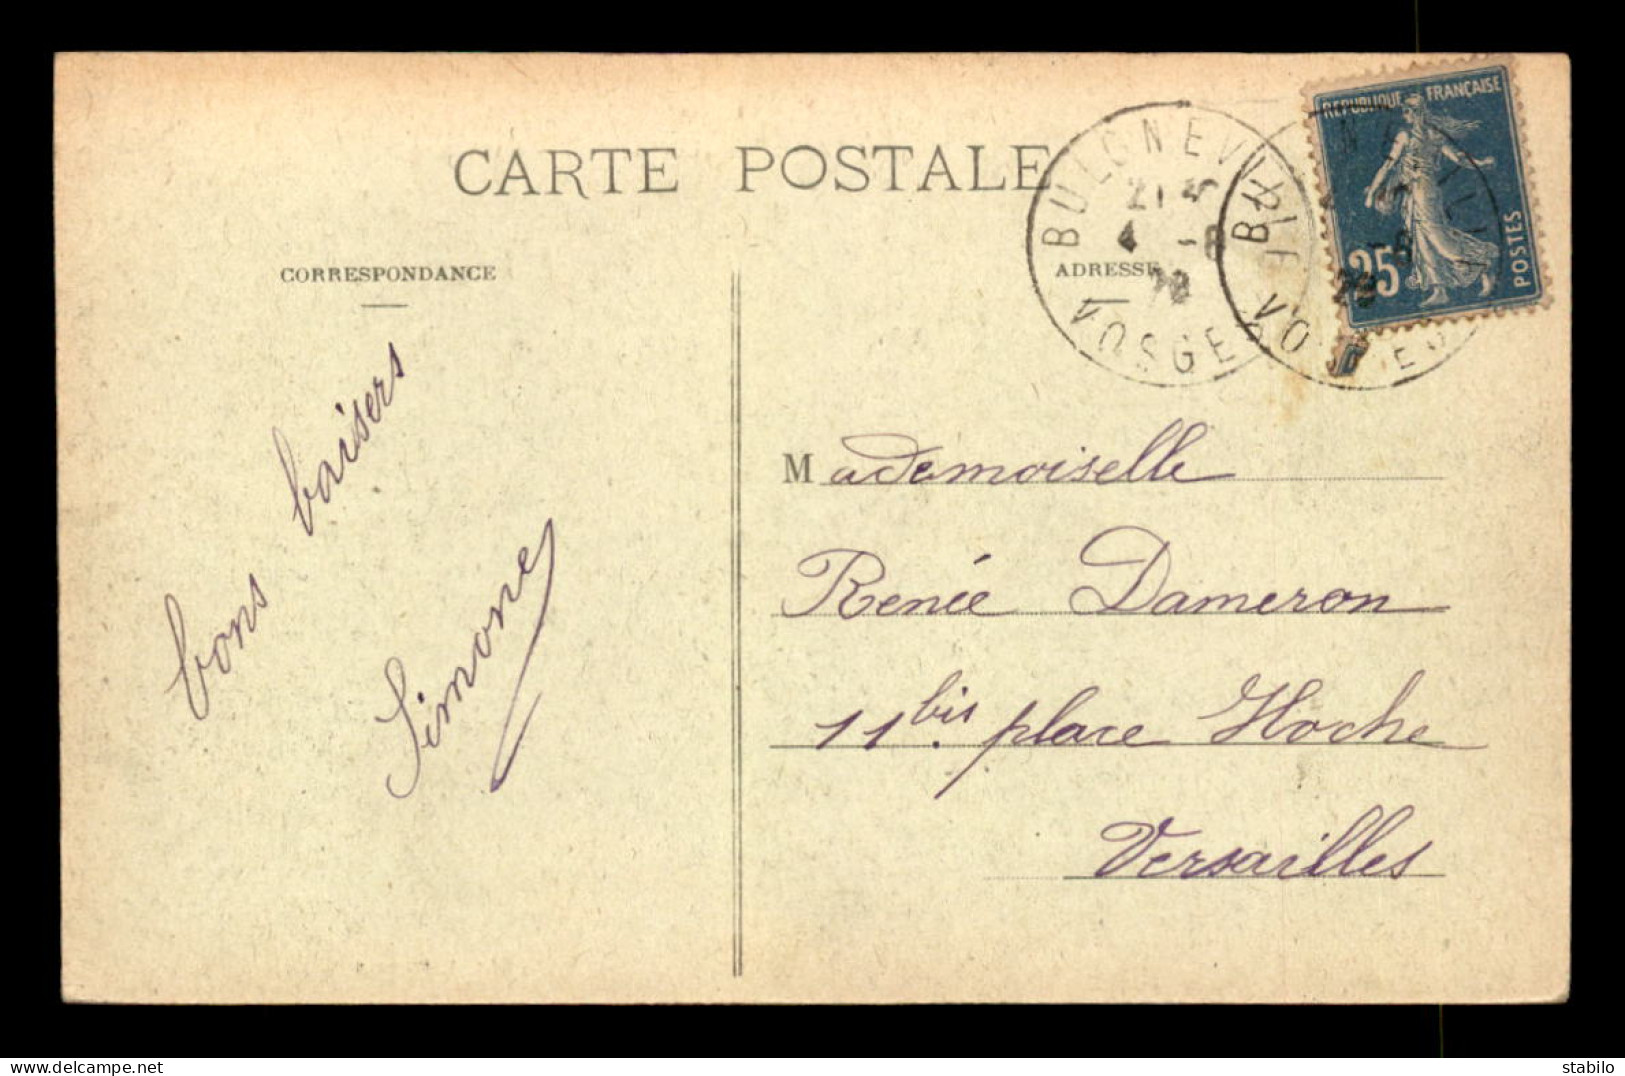 CARTE POSTALE
CORRESPONDANCE
ADRESSE
REPUBLIQUE FRANÇAISE
25
POSTES
BULGNEVILLE
VOSGES
bons baisers
Simone
Mademoiselle
Renée Dameron
11 bis place Hoche
Versailles
https://www.delcampe.net
stabilo